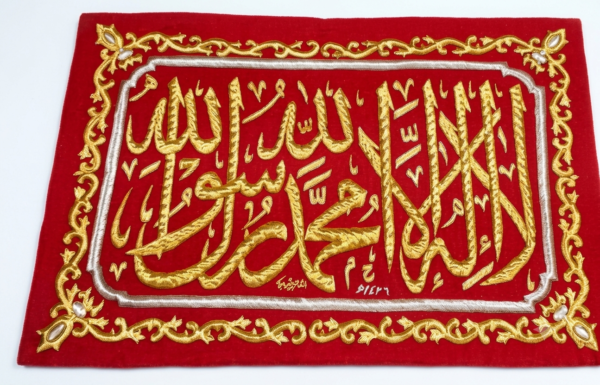 لا إله إلا الله محمد رسول الله
١٤٣٦